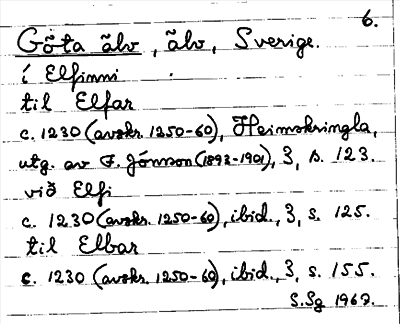 6.
Göta älv, älv, Sverige.
í Elfinni
til Elfar
c. 1230 (avskr. 1250-60), Heimskringla,
utg. av F. Jónsson (1893-1901), 3, s. 123.
við Elfi
c. 1230 (avskr. 1250-60), ibid., 3, s. 125.
til Elbar
c. 1230 (avskr. 1250-60), ibid., 3, s. 155.
S.Sg 1967.